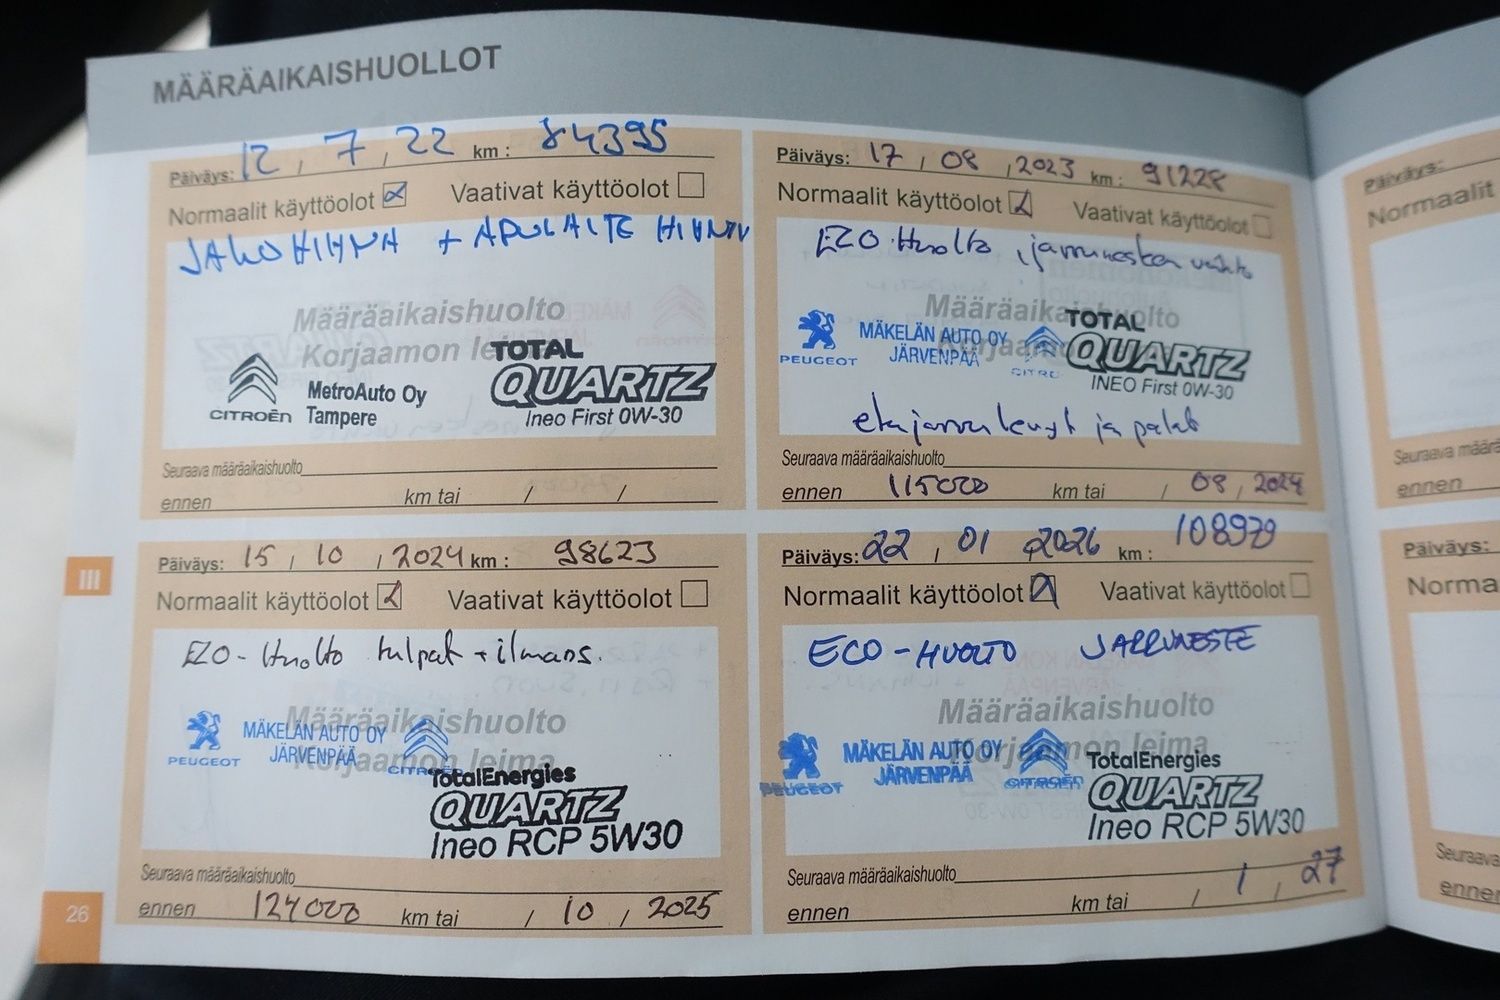 MÄÄRÄAIKAISHUOLLOT
Päiväys: 12 , 7 , 22 km : 84395
Normaalit käyttöolot Vaativat käyttöolot
JAKOHIHNA + APULAITE HIHNA
Määräaikaishuolto
Korjaamon leima
CITROËN
MetroAuto Oy
Tampere
TOTAL
QUARTZ
Ineo First 0W-30
Seuraava määräaikaishuolto
ennen km tai / /
Päiväys: 17 , 08 , 2023 km : 91228
Normaalit käyttöolot Vaativat käyttöolot
ECO Huolto , jarrunesteen vaihto
Määräaikaishuolto
Korjaamon
PEUGEOT
MÄKELÄN AUTO OY
JÄRVENPÄÄ
TOTAL
QUARTZ
INEO First 0W-30
etujarrulevyt ja palat
Seuraava määräaikaishuolto
ennen 115000 km tai / 08 , 2024
III
Päiväys: 15 , 10 , 2024 km : 98623
Normaalit käyttöolot Vaativat käyttöolot
ECO - Huolto tulpat + ilmans.
Määräaikaishuolto
Korjaamon leima
PEUGEOT
MÄKELÄN AUTO OY
JÄRVENPÄÄ
CITROËN
TotalEnergies
QUARTZ
Ineo RCP 5W30
Seuraava määräaikaishuolto
ennen 124000 km tai / 10 , 2025
Päiväys: 22 , 01 , 2026 km : 108979
Normaalit käyttöolot Vaativat käyttöolot
ECO - HUOLTO JARRUNESTE
Määräaikaishuolto
Korjaamon leima
PEUGEOT
MÄKELÄN AUTO OY
JÄRVENPÄÄ
CITROËN
TotalEnergies
QUARTZ
Ineo RCP 5W30
Seuraava määräaikaishuolto
ennen km tai / 1 , 27
26
Päiväys:
Normaalit
Seuraava määrä
ennen
Päiväys:
Norma
Seuraava
ennen